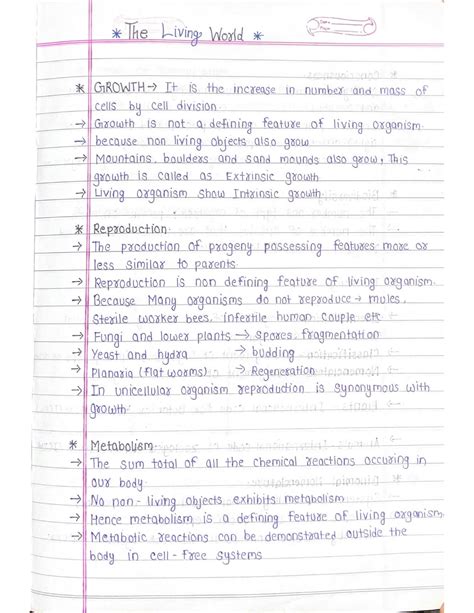 * The Living World *
* GROWTH → It is the increase in number and mass of
cells by cell division.
→ Growth is not a defining feature of living organism
→ because non living objects also grow
→ Mountains, boulders and sand mounds also grow, This
growth is called as Extrinsic growth
→ Living organism show Intrinsic growth.
* Reproduction
→ The production of progeny possessing features more or
less similar to parents
→ Reproduction is non defining feature of living organism.
→ Because Many organisms do not reproduce → mules,
Sterile worker bees, infertile human couple etc
→ Fungi and lower plants → spores, fragmentation
→ Yeast and hydra → budding
→ Planaria (flat worms) → Regeneration
→ In unicellular organism reproduction is synonymous with
growth.
* Metabolism
→ The sum total of all the chemical reactions occuring in
our body
→ No non-living objects exhibits metabolism
→ Hence metabolism is a defining feature of living organism
→ Metabotic reactions can be demonstrated outside the
body in cell-free systems